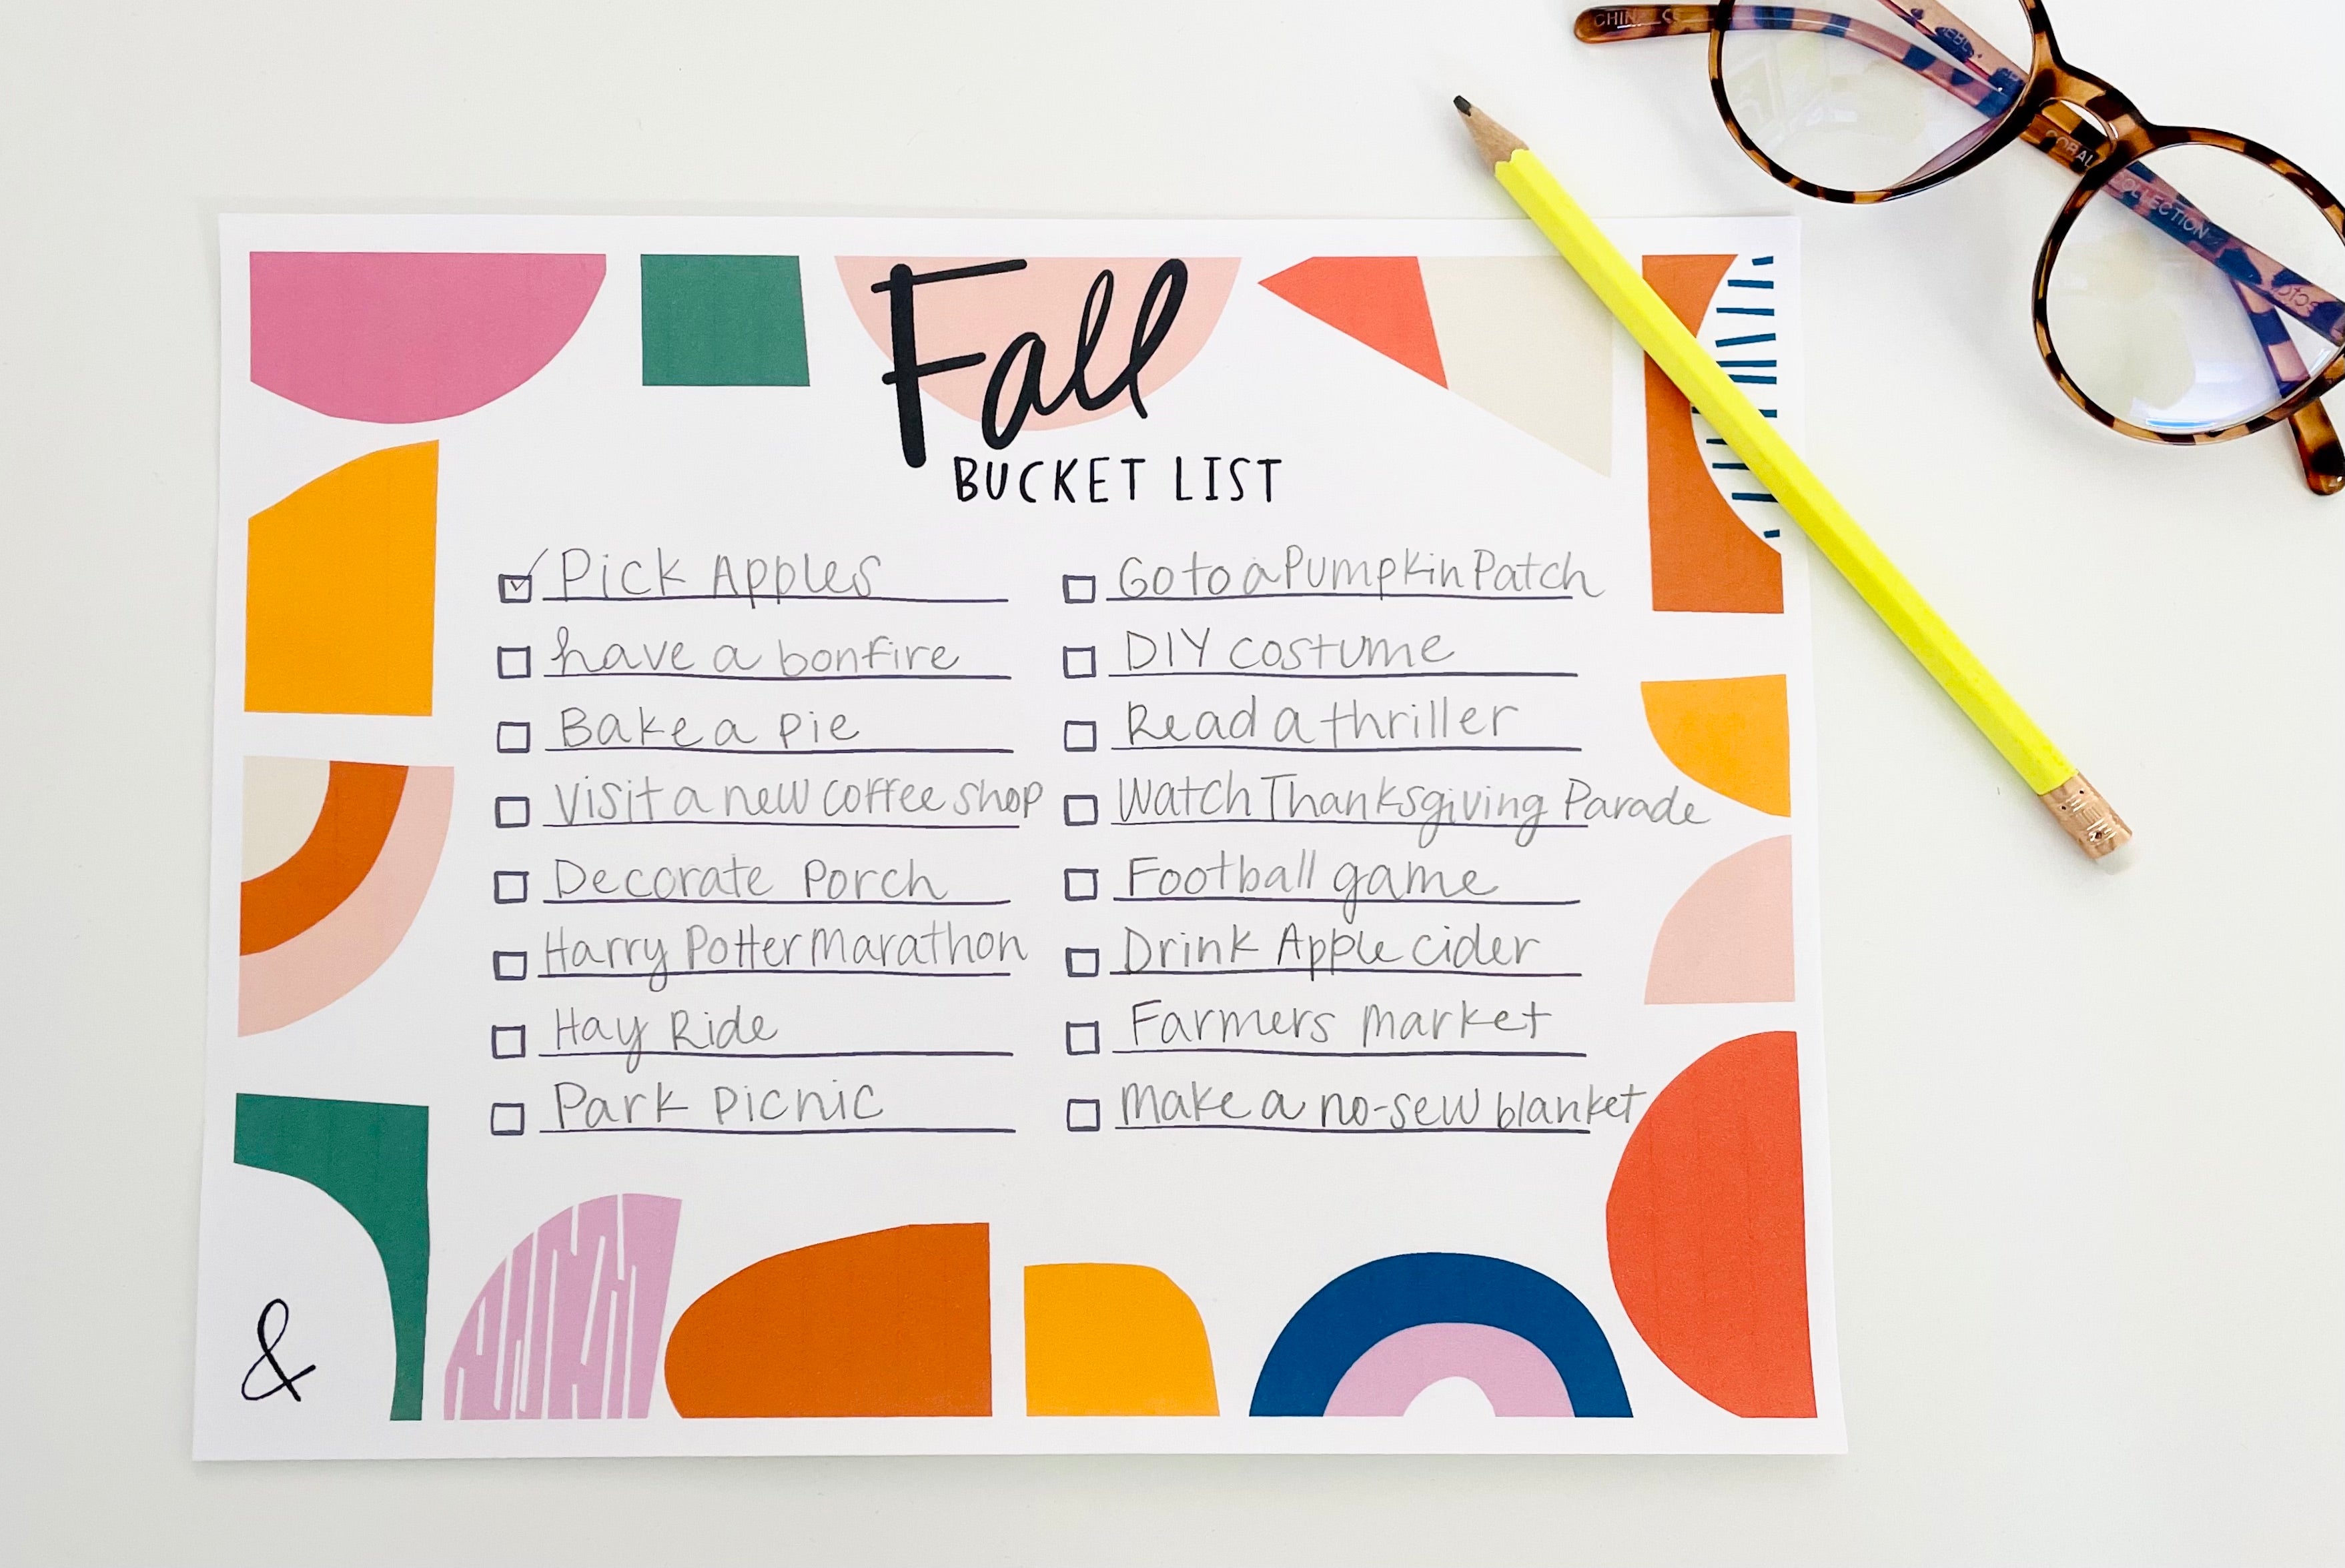 Fall
BUCKET LIST
Pick Apples
have a bonfire
Bake a pie
Visit a new coffee shop
Decorate Porch
Harry Potter Marathon
Hay Ride
Park picnic
Go to a Pumpkin Patch
DIY costume
Read a thriller
Watch Thanksgiving Parade
Football game
Drink Apple cider
Farmers market
make a no-sew blanket
&
CHINA CE
COLLECTION